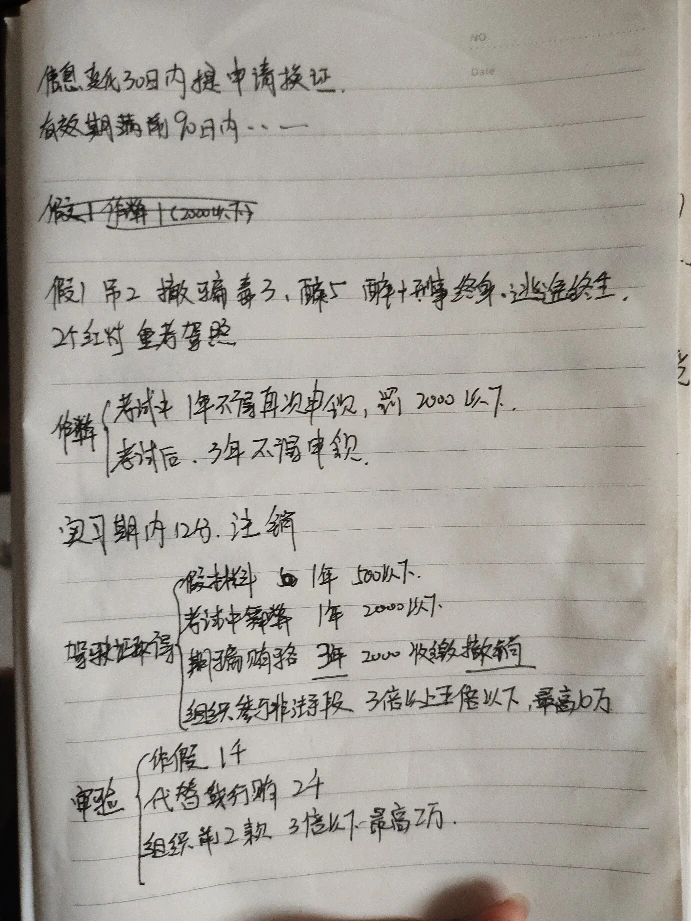 NO
Date
信息变化30日内提申请换证.
有效期满前90日内··一
假文+作弊+(2000以下)
假1 吊2 撤骗毒3、醉5 醉+刑事终身.逃逸终生.
25红灯 重考驾照
作弊
考试中 1年不得再次申领, 罚 2000以下.
考试后. 3年不得申领.
实习期内12分.注销
驾驶证取得
假材料 1年 500以下.
考试中舞弊 1年 2000以下.
欺骗贿赂 3年 2000 收缴撤销
组织参与非法手段 3倍以上五倍以下,最高10万
审验
作假 1千
代替或行贿 2千
组织前2款 3倍以下 最高2万.